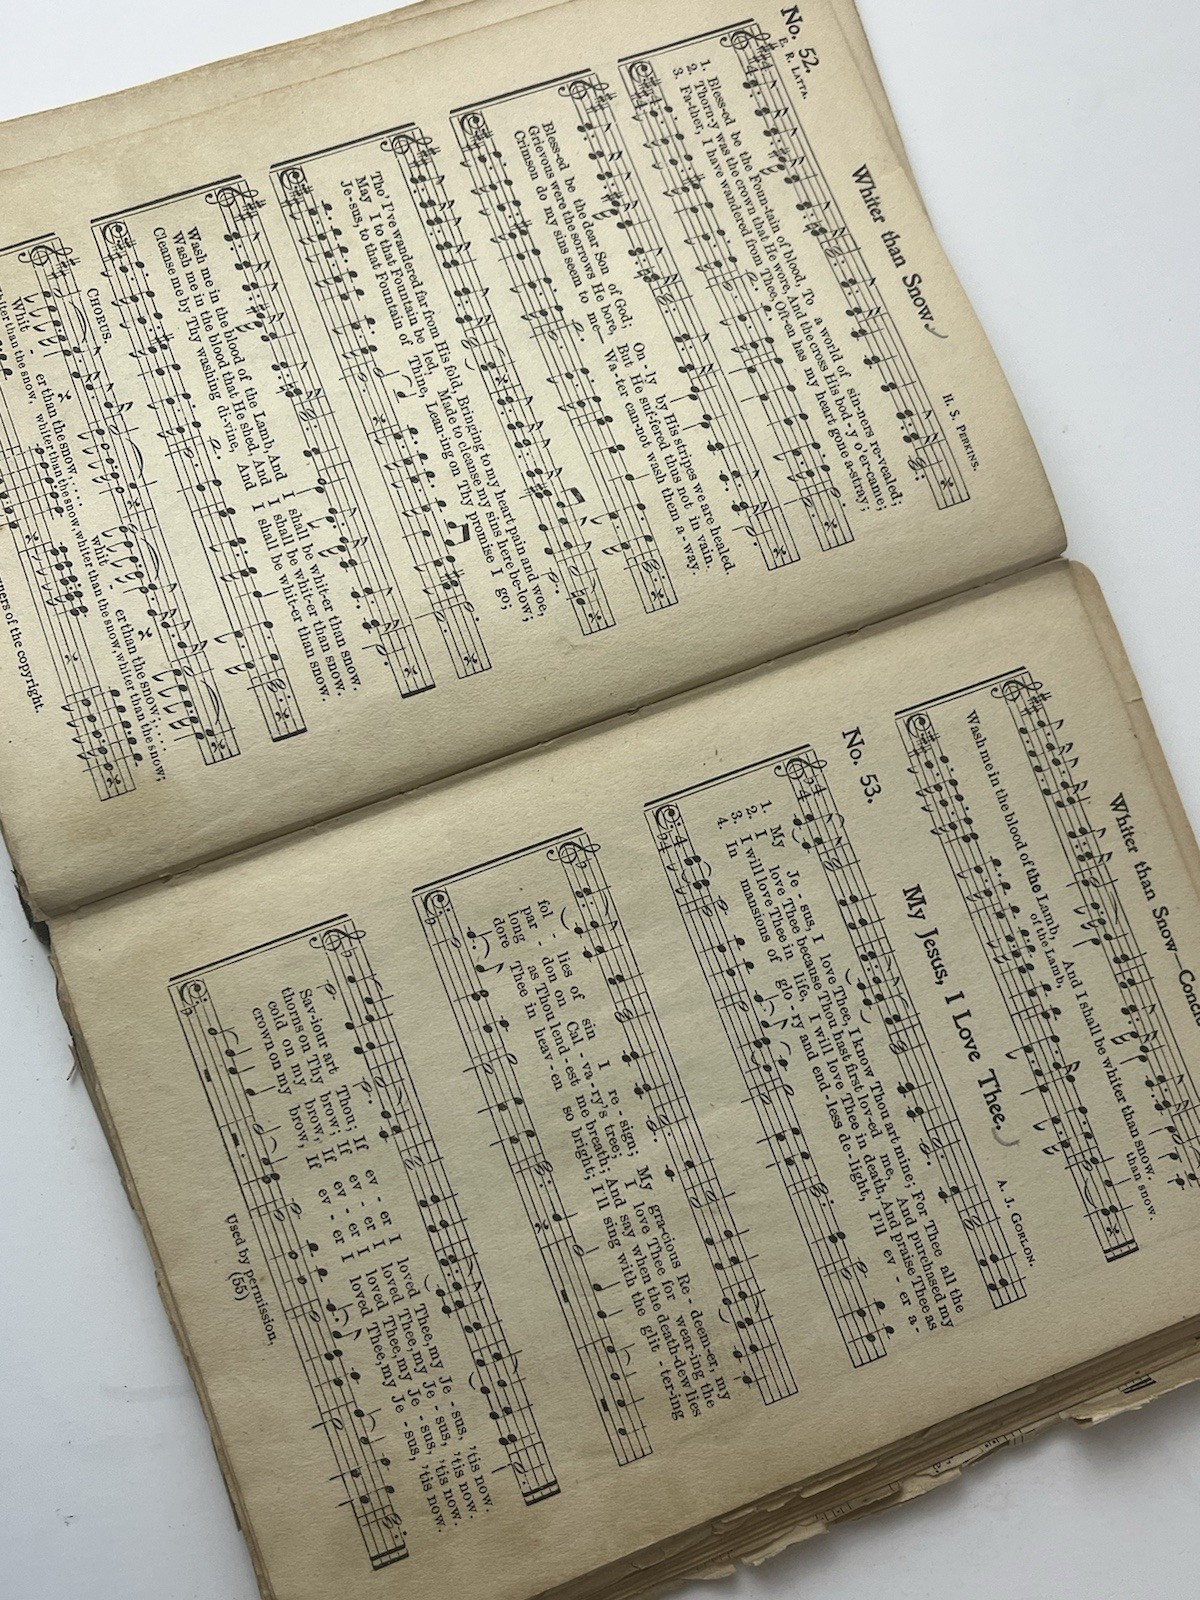 Whiter than Snow.
No. 52.
E. R. LATTA.
H. S. PERKINS.
1. Bless-ed be the Foun-tain of blood, To a world of sin-ners re-vealed;
2. Thorn-y was the crown that He wore, And the cross His bod-y o'er-came;
3. Fa-ther, I have wandered from Thee, Oft-en has my heart gone a-stray;
Bless-ed be the dear Son of God; On-ly by His stripes we are healed.
Grievous were the sorrows He bore, But He suf-fered thus not in vain.
Crimson do my sins seem to me— Wa-ter can-not wash them a-way.
Tho' I've wandered far from His fold, Bringing to my heart pain and woe,
May I to that Fountain be led, Made to cleanse my sins here be-low;
Je-sus, to that Fountain of Thine, Lean-ing on Thy promise I go;
Wash me in the blood of the Lamb, And I shall be whit-er than snow.
Wash me in the blood that He shed, And I shall be whit-er than snow.
Cleanse me by Thy washing di-vine, And I shall be whit-er than snow.
CHORUS.
Whit - er than the snow, . . . . . whit - er than the snow; . . . . .
whiter than the snow, whiter than the snow, whiter than the snow, whiter than the snow;
owners of the copyright.
Whiter than Snow—Concl
Wash me in the blood of the Lamb, And I shall be whiter than snow.
of the Lamb, than snow.
No. 53.
My Jesus, I Love Thee.
A. J. GORLON.
1. My Je - sus, I love Thee, I know Thou art mine; For Thee all the
2. I love Thee because Thou hast first lov-ed me, And purchased my
3. I will love Thee in life, I will love Thee in death, And praise Thee as
4. In mansions of glo - ry and end - less de - light, I'll ev - er a -
fol - lies of sin I re - sign; My gra-cious Re - deem-er, my
par - don on Cal - va-ry's tree; I love Thee for wear-ing the
long as Thou lend - est me breath; And say when the death-dew lies
dore Thee in heav - en so bright; I'll sing with the glit - ter-ing
Sav-iour art Thou; If ev - er I loved Thee, my Je - sus, 'tis now.
thorns on Thy brow; If ev - er I loved Thee, my Je - sus, 'tis now.
cold on my brow, If ev - er I loved Thee, my Je - sus, 'tis now.
crown on my brow, If ev - er I loved Thee, my Je - sus, 'tis now.
Used by permission,
(55)